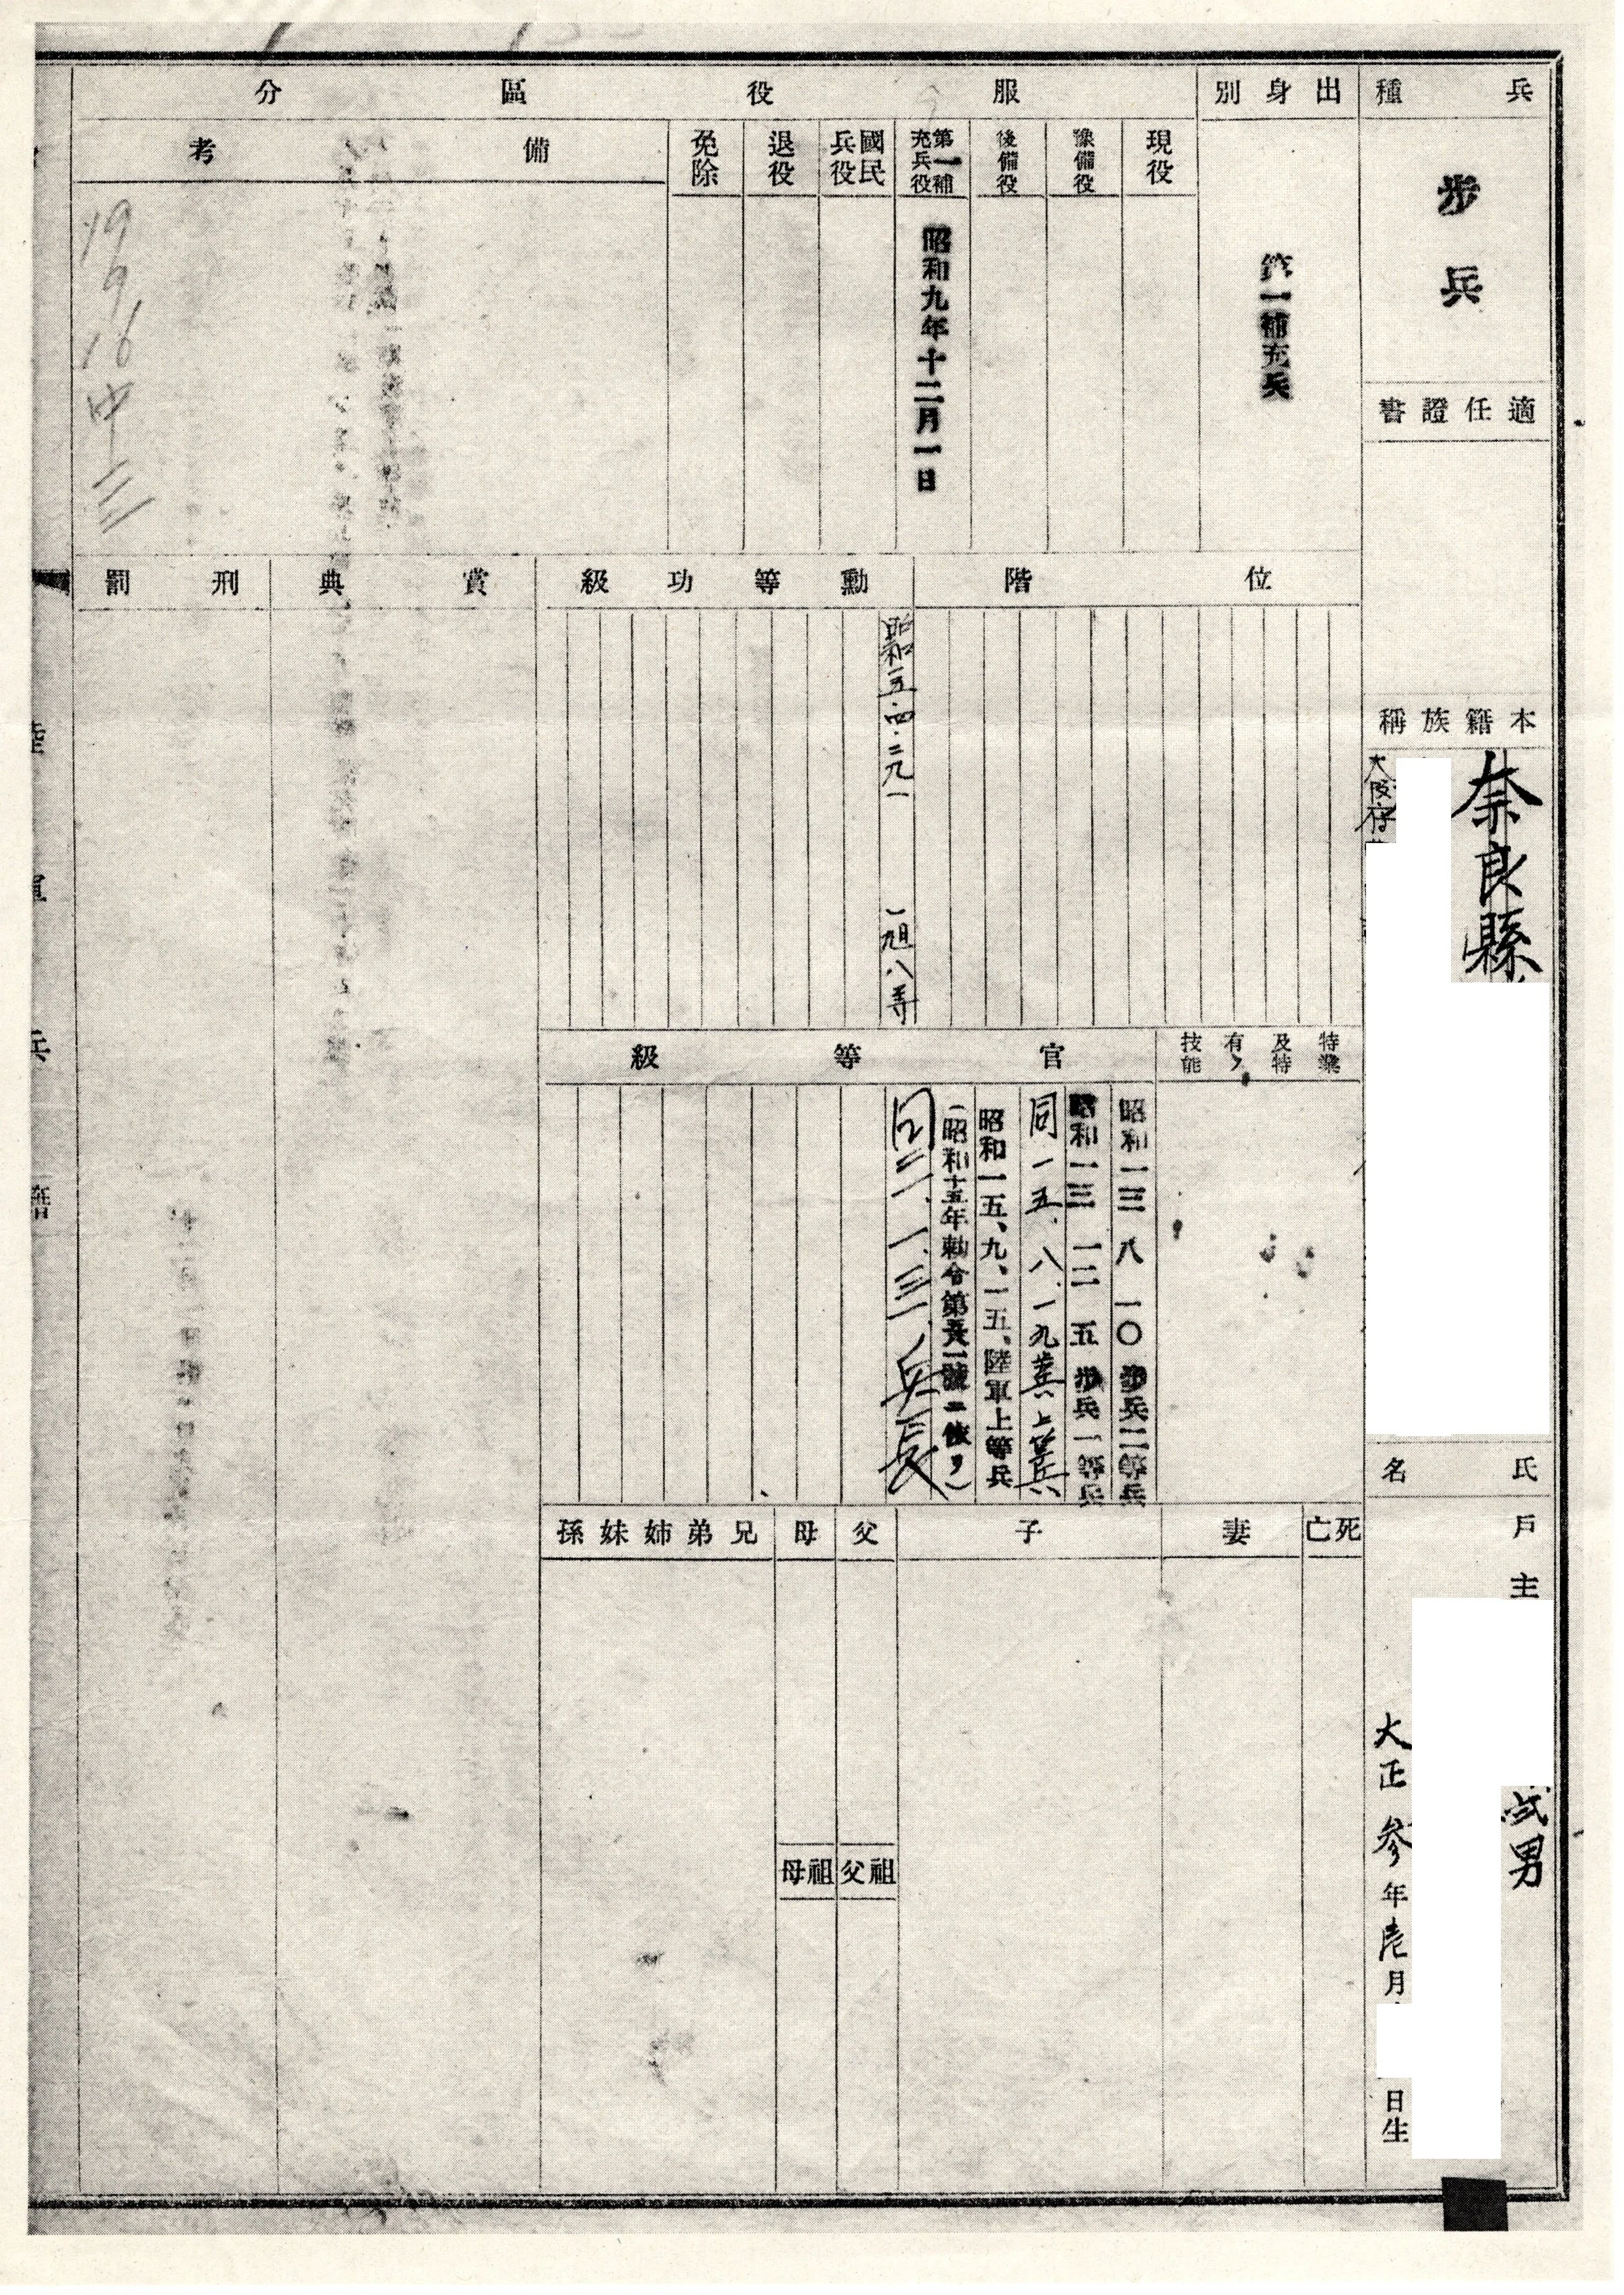 兵種
步兵
適任證書
本籍族稱
奈良縣
大阪府
氏名
戶主
弐男
大正參年壱月
日生
出身別
第一補充兵
服役區分
現役
豫備役
後備役
第一補充兵役
昭和九年十二月一日
國民兵役
退役
免除
備考
19 9 16 中三
位階
勳等功級
昭和一五・四・二九
旭八等
賞典
刑罰
特業及特有ノ技能
官等級
昭和一三 八 一〇 步兵二等兵
昭和一三 一二 五 步兵一等兵
同一五、八、一九
昭和一五、九、一五、陸軍上等兵
(昭和十五年勅令第五八一號ニ依リ)
兵長
死亡
妻
子
父
母
兄弟姉妹孫
祖父
祖母
陸軍兵籍